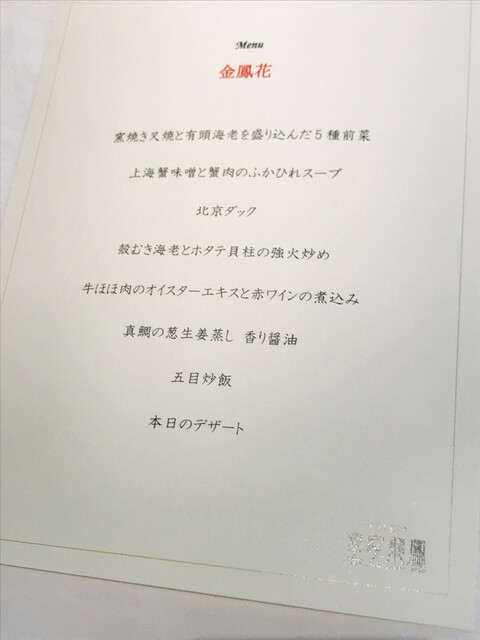 Menu
金鳳花
窯焼き叉焼と有頭海老を盛り込んだ5種前菜
上海蟹味噌と蟹肉のふかひれスープ
北京ダック
殻むき海老とホタテ貝柱の強火炒め
牛ほほ肉のオイスターエキスと赤ワインの煮込み
真鯛の葱生姜蒸し 香り醤油
五目炒飯
本日のデザート